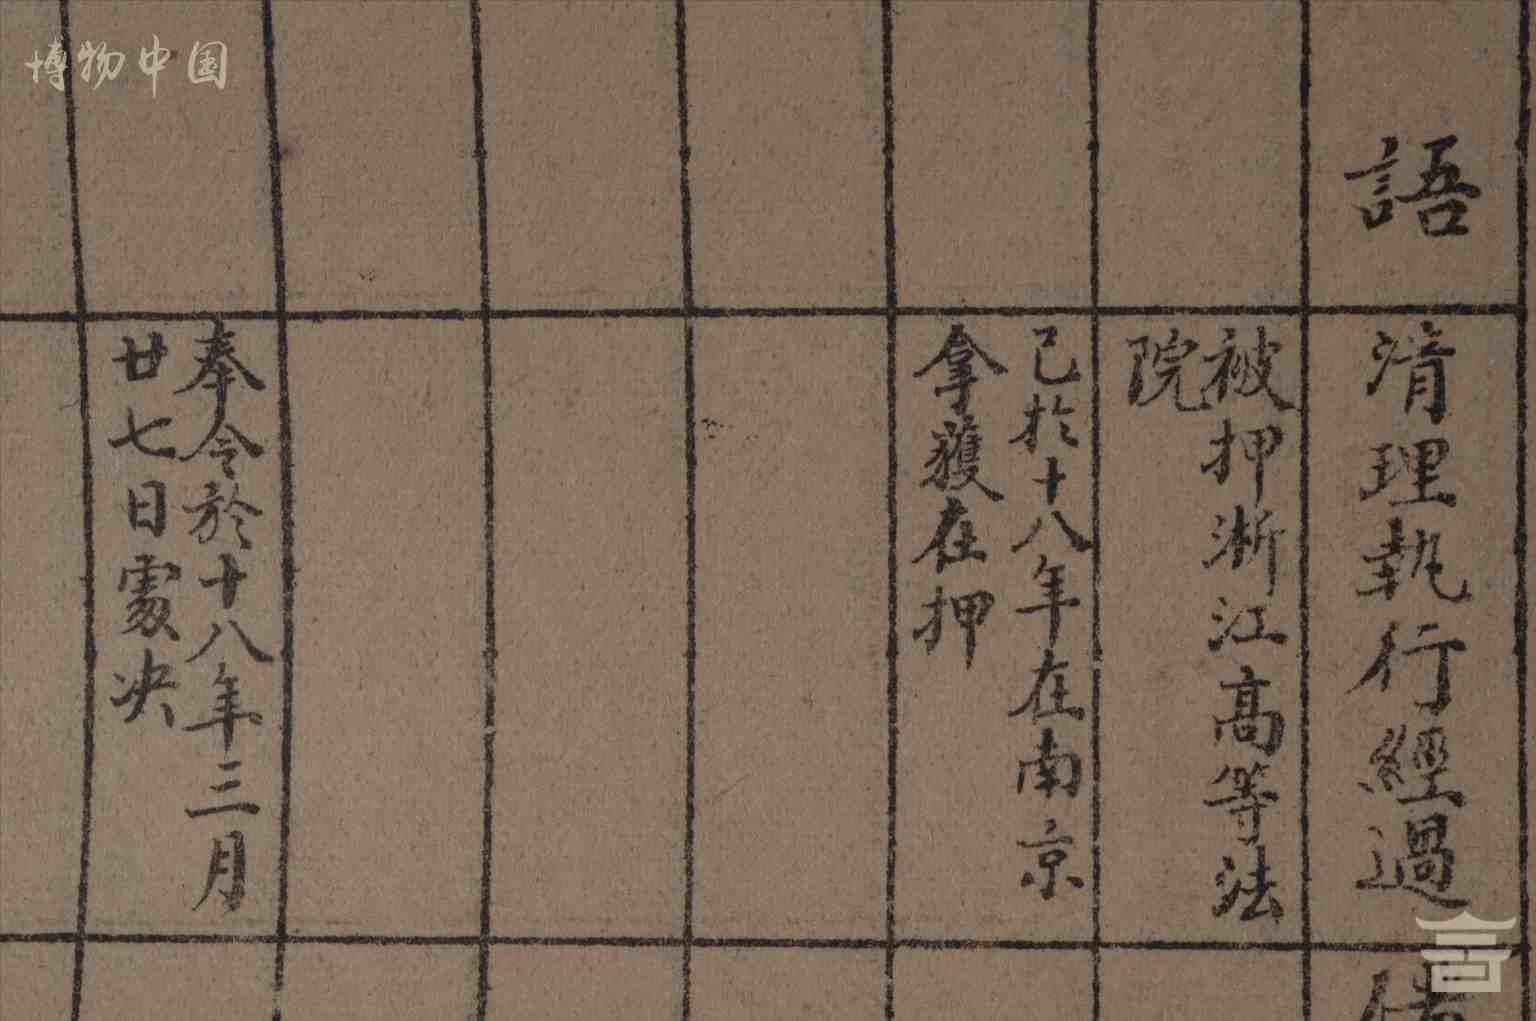 博物中国
語
清理執行經過
被押浙江高等法
院
已於十八年在南京
拿獲在押
奉令於十八年三月
廿七日處决